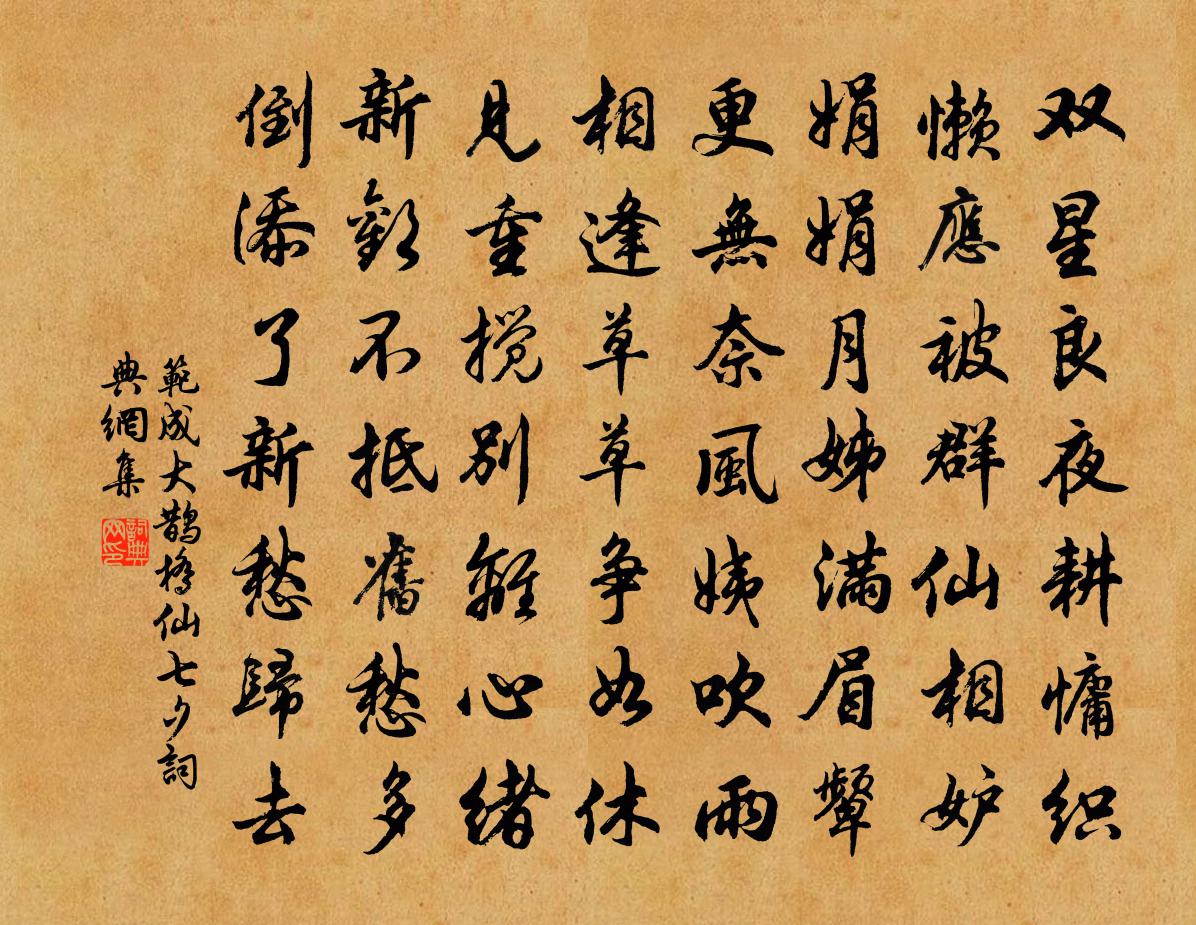 双星良夜耕慵织
懒應被群仙相妒
娟娟月姊满眉颦
更無奈風姨吹雨
相逢草草争如休
見重搅别離心緒
新歡不抵舊愁多
倒添了新愁歸去
範成大鵲橋仙七夕詞
典網集
詞典
网印